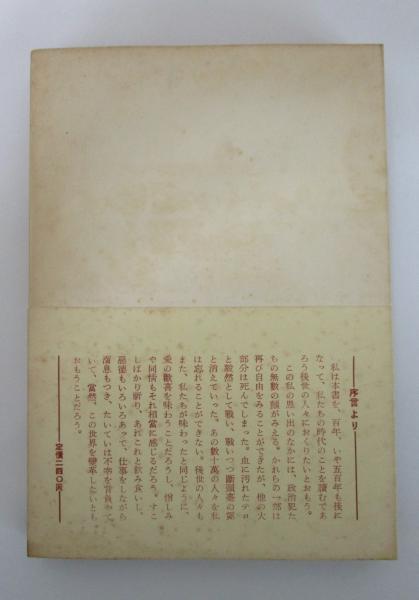 序言より
私は本書を、百年、いや五百年も後に
なって、私たちの時代のことを讀むであ
ろう後世の人々におくりたいとおもう。
この私の思い出のなかには、政治犯た
ちの無数の顔がみえる。かれらの一部は
再び自由をみることができたが、他の大
部分は死んでしまった。血に汚れたテロ
と毅然として戰い、戰いつつ断頭臺の露
と消えていった、あの数十萬の人々を私
は忘れることができない。後世の人々も
また、私たちが味わったと同じように、
愛の歓喜を味わうことだろうし、憎しみ
や同情もそれ相當に感じるだろう。すこ
しばかり祈り、あれこれと飲み食いし、
惡徳もいろいろあって、仕事をしながら
溜息もつき、たいていは不幸を背負って
いて、當然、この世界を變革したいとも
おもうことだろう。
定價二四〇円